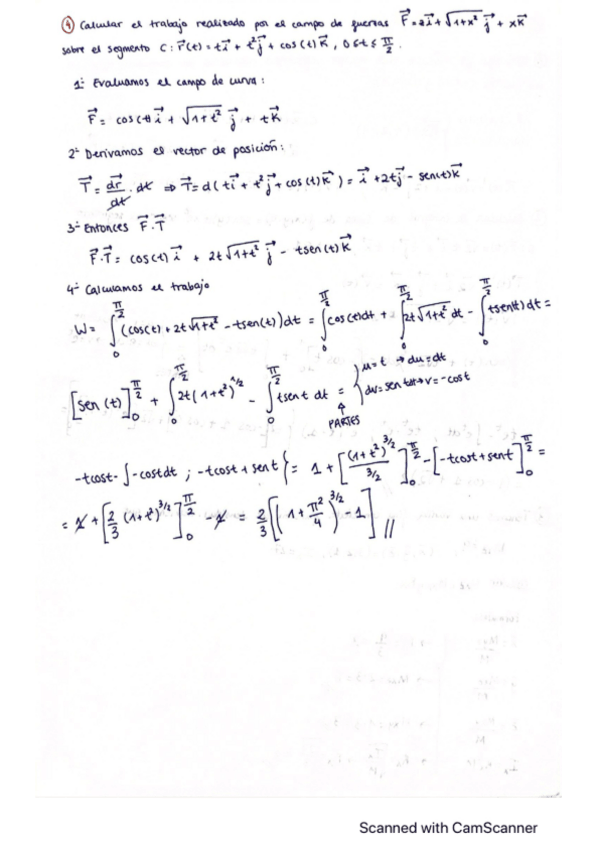 ④ Calcular el trabajo realizado por el campo de fuerzas F⃗ = zi⃗ + √(1+x²) j⃗ + xk⃗
sobre el segmento C: r⃗(t) = ti⃗ + t²j⃗ + cos(t)k⃗, 0≤t≤ π/2.
1º Evaluamos el campo de curva:
F⃗ = cos(t)i⃗ + √(1+t²) j⃗ + tk⃗
2º Derivamos el vector de posición:
T⃗ = dr⃗/dt · dt ⇒ T⃗ = d(ti⃗ + t²j⃗ + cos(t)k⃗) = i⃗ + 2tj⃗ - sen(t)k⃗
3º Entonces F⃗·T⃗
F⃗·T⃗ = cos(t)i⃗ + 2t√(1+t²) j⃗ - tsen(t)k⃗
4º Calculamos el trabajo
W = ∫₀^(π/2) (cos(t) + 2t√(1+t²) - tsen(t))dt = ∫₀^(π/2) cos(t)dt + ∫₀^(π/2) 2t√(1+t²) dt - ∫₀^(π/2) tsen(t)dt =
[sen(t)]₀^(π/2) + ∫₀^(π/2) 2t(1+t²)^(1/2) - ∫₀^(π/2) tsent dt = { u=t → du=dt
dv=sentdt → v=-cost
↑
PARTES
-tcost - ∫-costdt ; -tcost + sent } = 1 + [(1+t²)^(3/2) / (3/2)]₀^(π/2) - [-tcost + sent]₀^(π/2) =
= 1 + [2/3 (1+t²)^(3/2)]₀^(π/2) - 1 = 2/3 [(1 + π²/4)^(3/2) - 1] //
Scanned with CamScanner